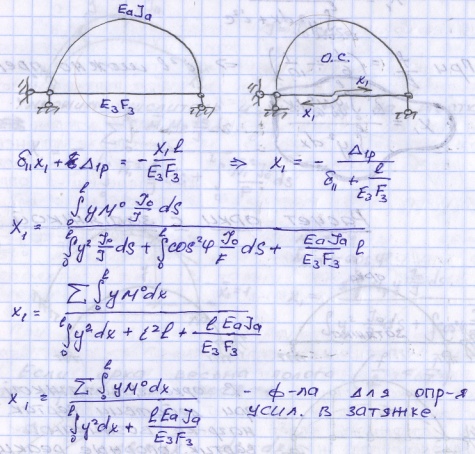 EaJa
E₃F₃
О.С.
x₁
x₁
δ₁₁x₁ + Δ₁p = - x₁l / E₃F₃ ⇒ x₁ = - Δ₁p / (δ₁₁ + l / E₃F₃)
X₁ = ∫₀ˡ y M° J₀/J dS / (∫₀ˡ y² J₀/J dS + ∫₀ˡ cos²φ J₀/F dS + EaJa / E₃F₃ l)
x₁ = Σ ∫₀ˡ y M° dx / (∫₀ˡ y² dx + i² l + l EaJa / E₃F₃)
x₁ = Σ ∫₀ˡ y M° dx / (∫₀ˡ y² dx + l EaJa / E₃F₃) - ф-ла для опр-я
усил. в затяжке